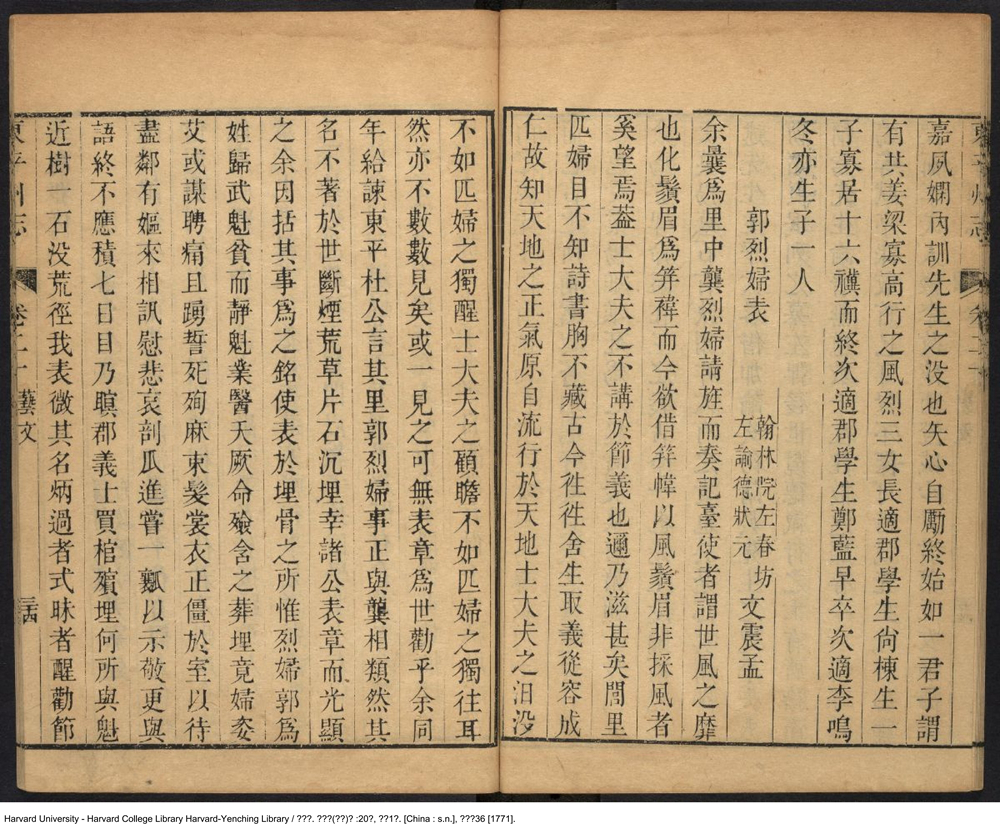 嘉夙嫻內訓先生之没也矢心自勵終始如一君子謂
有共姜梁寡高行之風烈三女長適郡學生尙棟生一
子寡居十六禩而終次適郡學生鄭藍早卒次適李鳴
冬亦生子一人
郭烈婦表
翰林院左春坊
左諭德狀元
文震孟
余曩爲里中龔烈婦請旌而奏記臺使者謂世風之靡
也化鬚眉爲笄褘而今欲借笄幃以風鬚眉非採風者
奚望焉葢士大夫之不講於節義也邇乃滋甚矣閭里
匹婦目不知詩書胸不藏古今徃徃舍生取義從容成
仁故知天地之正氣原自流行於天地士大夫之汨没
不如匹婦之獨醒士大夫之顧瞻不如匹婦之獨往耳
然亦不數數見矣或一見之可無表章爲世勸乎余同
年給諫東平杜公言其里郭烈婦事正與龔相類然其
名不著於世斷煙荒草片石沉埋幸諸公表章而光顯
之余因括其事爲之銘使表於埋骨之所惟烈婦郭爲
姓歸武魁貧而靜魁業醫夭厥命殮含之葬埋竟婦姿
艾或謀聘痛且踴誓死殉麻束髮裳衣正僵於室以待
盡鄰有嫗來相訊慰悲哀剖瓜進嘗一瓢以示敬更與
語終不應積七日目乃瞑郡義士買棺殯埋何所與魁
近樹一石没荒徑我表微其名炳過者式昧者醒勸節
東平州志
卷二十
藝文
三四
Harvard University - Harvard College Library Harvard-Yenching Library / ???. ???(??)? :20?, ??1?. [China : s.n.], ???36 [1771].